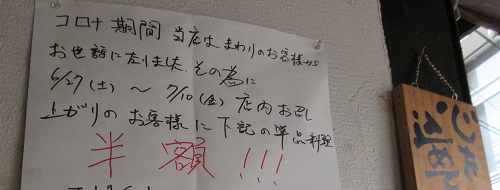 コロナ期間 当店は まわりのお客様から
お世話になりました。その為に
6/27(土) ～ 7/10(金) 店内お召し
上がりのお客様に下記の単品料理
半額!!!